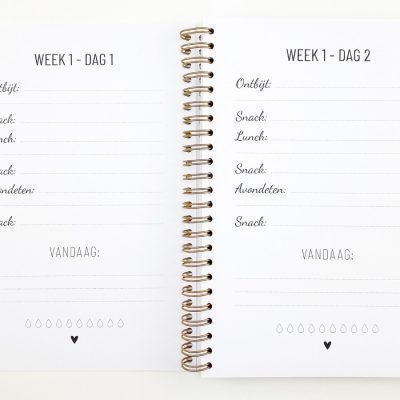 WEEK 1 - DAG 1
tbijt:
ack:
nch:
ack:
ondeten:
ack:
VANDAAG:
WEEK 1 - DAG 2
Ontbijt:
Snack:
Lunch:
Snack:
Avondeten:
Snack:
VANDAAG: